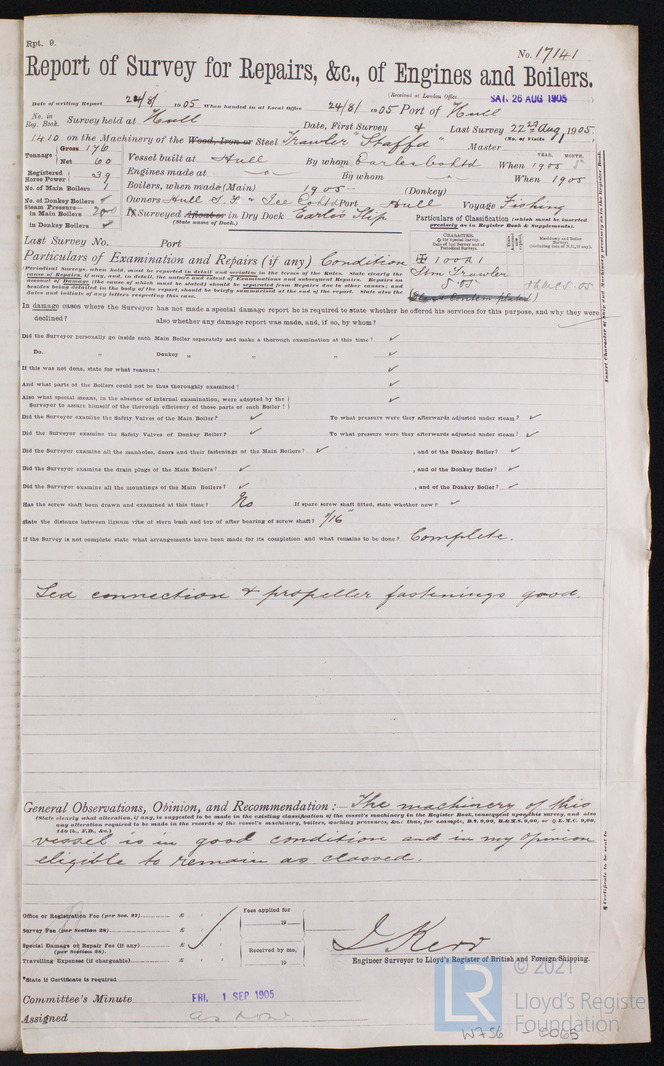 Rpt. 9.
No. 17141
Report of Survey for Repairs, &c., of Engines and Boilers.
(Received at London Office SAT. 26 AUG 1905 )
Date of writing Report 24/8/ 1905 When handed in at Local Office 24/8/ 1905 Port of Hull
No. in Reg. Book. Survey held at Hull Date, First Survey & Last Survey 22nd Aug, 1905
(No. of Visits )
1410 on the Machinery of the Wood, Iron or Steel Trawler "Staffa" Master
Tonnage Gross 176 Net 60
Vessel built at Hull By whom Earles Co Ltd When 1905 5
YEAR. MONTH.
Registered Horse Power 39
Engines made at By whom When 1905
No. of Main Boilers 1
Boilers, when made (Main) 1905 (Donkey)
No. of Donkey Boilers
Owners Hull S. F. & Ice Co Ltd Port Hull Voyage Fishing
Steam Pressure— in Main Boilers 200
in Donkey Boilers
If Surveyed Afloat or in Dry Dock Earle's Slip
(State name of Dock.)
Particulars of Classification (which must be inserted precisely as in Register Book & Supplements).
Last Survey No. Port
Particulars of Examination and Repairs (if any) Condition
CHARACTER.
100A1
Stm Trawler
5.05
(Periodical Surveys, when held, must be reported in detail and seriatim in the terms of the Rules. State clearly the cause of Repairs, if any, and, in detail, the nature and extent of Examinations and subsequent Repairs. Repairs on account of Damage (the cause of which must be stated) should be separated from Repairs due to other causes; and besides being detailed in the body of the report, should be briefly summarised at the end of the report. State also the dates and initials of any letters respecting this case.
In damage cases where the Surveyor has not made a special damage report he is required to state whether he offered his services for this purpose, and why they were
declined? also whether any damage report was made, and, if so, by whom?
Did the Surveyor personally go inside each Main Boiler separately and make a thorough examination at this time? ✓
Do. „ Donkey „ „ „ ✓
If this was not done, state for what reasons? ✓
And what parts of the Boilers could not be thus thoroughly examined? ✓
Also what special means, in the absence of internal examination, were adopted by the Surveyor to assure himself of the thorough efficiency of those parts of each Boiler? ✓
Did the Surveyor examine the Safety Valves of the Main Boiler? ✓ To what pressure were they afterwards adjusted under steam? ✓
Did the Surveyor examine the Safety Valves of Donkey Boiler? ✓ To what pressure were they afterwards adjusted under steam? ✓
Did the Surveyor examine all the manholes, doors and their fastenings of the Main Boilers? ✓ , and of the Donkey Boiler? ✓
Did the Surveyor examine the drain plugs of the Main Boilers? ✓ , and of the Donkey Boiler? ✓
Did the Surveyor examine all the mountings of the Main Boilers? ✓ , and of the Donkey Boiler? ✓
Has the screw shaft been drawn and examined at this time? No If spare screw shaft fitted, state whether new? ✓
State the distance between lignum vitæ of stern bush and top of after bearing of screw shaft? 1/16"
If the Survey is not complete state what arrangements have been made for its completion and what remains to be done? Complete.
Sea connection & propeller fastenings good.
General Observations, Opinion, and Recommendation :— The machinery of this
(State clearly what alteration, if any, is suggested to be made in the existing classification of the vessel's machinery in the Register Book, consequent upon this survey, and also any alteration required to be made in the records of the vessel's machinery, boilers, working pressures, &c.: thus, for example, B.S. 9,00, B.&M.S. 9,00, or L.M.C. 9,00, 140 lb., F.D., &c.)
vessel is in good condition and in my opinion
eligible to remain as classed.
Office or Registration Fee (per Sec. 27) £
Survey Fee (per Section 28) £
Special Damage or Repair Fee (if any) (per Section 28). £
Travelling Expenses (if chargeable) £
Fees applied for 19
Received by me, 19
J Kerr
Engineer Surveyor to Lloyd's Register of British and Foreign Shipping.
*State if Certificate is required
Committee's Minute FRI. 1 SEP 1905
Assigned as now
Insert Character of Ship and Machinery precisely as in the Register Book.
*Certificate to be sent to
LR
© 2021
Lloyd's Register
Foundation
W756 - 0065